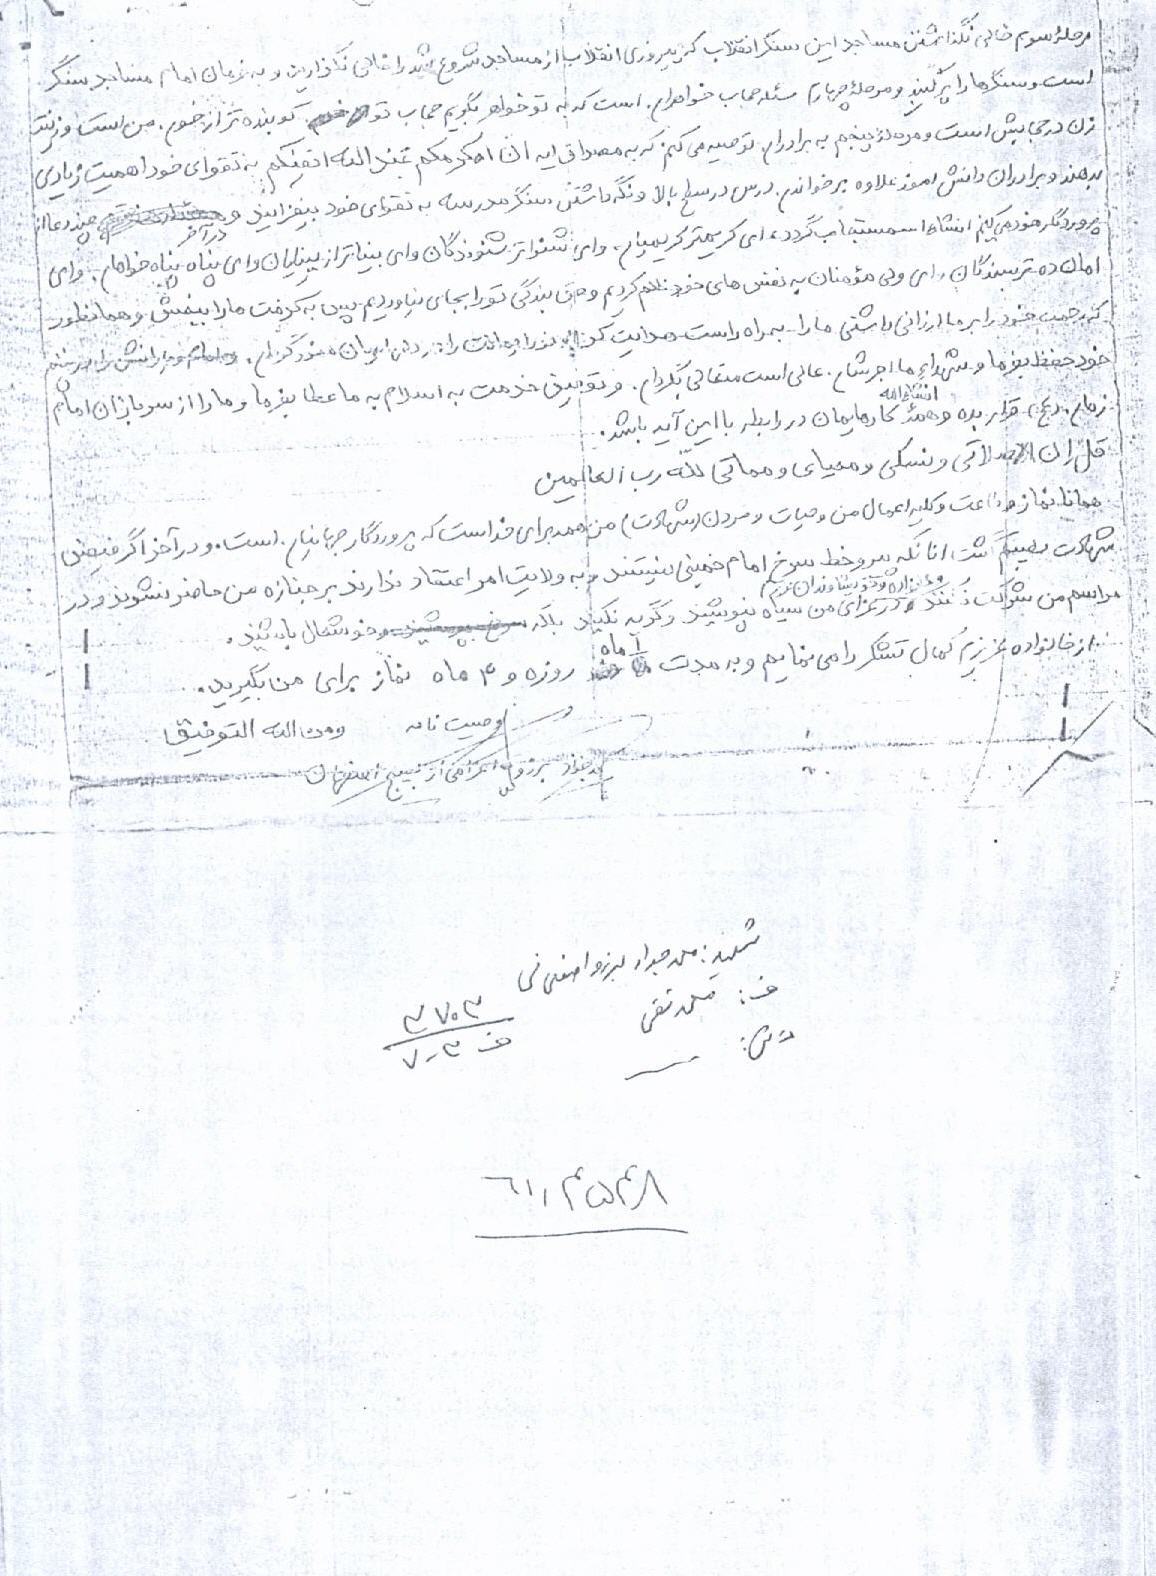 مرحلهٔ سوم خالی نگذاشتن مساجد این سنگر انقلاب که پیروزی انقلاب از مساجد شروع شد را خالی نگذارید و به فرمان امام مساجد سنگر
است و سنگرها را پر کنید و مرحلهٔ چهارم مسئله حجاب خواهرام. است که به تو خواهر بگویم حجاب تو کوبنده تر از خون. من است و زینت
زن در حجابش است و مرحلهٔ پنجم به برادرام. توصیه می کنم که به مصداق ایه ان اکرمکم عند الله اتقیکم به تقوای خود اهمیت زیادی
بدهند و برادران دانش اموز علاوه بر خواندن. درس در سطح بالا و نگه داشتن سنگر مدرسه به تقوای خود بیفزایند و در آخر چند دعا از
پروردگار خود می کنم انشاءا... مستجاب گردد، ای کریمتر کریمان. و ای شنواتر شنوندگان و ای بیناتر از بینایان و ای پناه پناه خواهان. و ای
امان ده ترسندگان. ای ولی مؤمنان به نفس های خود ظلم کردیم و حق بندگی تو را بجای نیاوردیم پس به کرمت ما را ببخش و همانطور
که رحمت خود را بر ما ارزانی داشتی ما را به راه راست هدایت کن را در دل ایران منور گردان.
خود حفظ بفرما و شهداء ما اجرشان. عالی است متعالی بگردان. و توفیق خدمت به اسلام به ما عطا بفرما و ما را از سربازان امام
زمان (عج) قرار بده و همهٔ کارهایمان انشاءالله در رابطه با این آیه باشد.
قل ان صلاتی و نسکی و محیای و مماتی لله رب العالمین
همانا نماز و طاعت و کلیه اعمال من و حیات و مردن (شهادت) من همه برای خداست که پروردگار جهانیان. است. و در آخر اگر فیض
شهادت نصیبم گشت انانکه پیرو خط سرخ امام خمینی نیستند و به ولایت امر اعتقاد ندارند بر جنازه من حاضر نشوند و در
مراسم من شرکت نکنند و خانواده و خویشاوندان عزیزم در عزای من سیاه نپوشند و گریه نکنند بلکه خوشحال باشند.
از خانواده عزیزم کمال تشکر را می نمایم و به مدت ۱ ماه روزه و ۴ ماه نماز برای من بگیرید.
وصیت نامه ومن الله التوفیق
محمد جواد برزو اعزامی از بسیج اصفهان
شهید: محمد جواد برزو اصفهانی
ف: محمد تقی
ش:
۳۷۰۳
ف ۷۰۳
۶۱٫۴۵۴۸